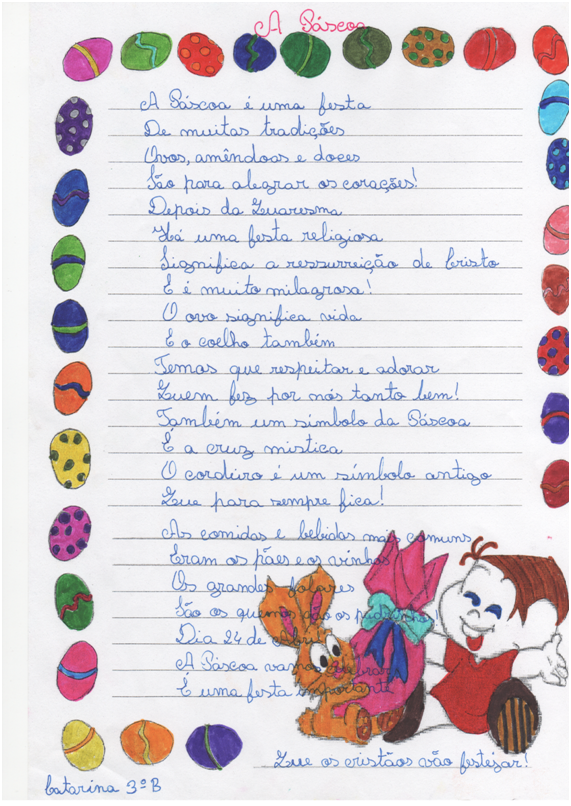 A Páscoa
A Páscoa é uma festa
De muitas tradições
Ovos, amêndoas e doces
São para alegrar os corações!
Depois da Quaresma
Há uma festa religiosa
Significa a ressurreição de Cristo
E é muito milagrosa!
O ovo significa vida
E o coelho também
Temos que respeitar e adorar
Quem fez por nós tanto bem!
Também um símbolo da Páscoa
É a cruz mistica
O cordeiro é um símbolo antigo
Que para sempre fica!
As comidas e bebidas mais comuns
Eram os pães e os vinhos
Os grandes folares
São os que nos dão os padrinhos
Dia 24 de Abril
A Páscoa vamos celebrar
É uma festa importante
Que os cristãos vão festejar!
Catarina 3º B